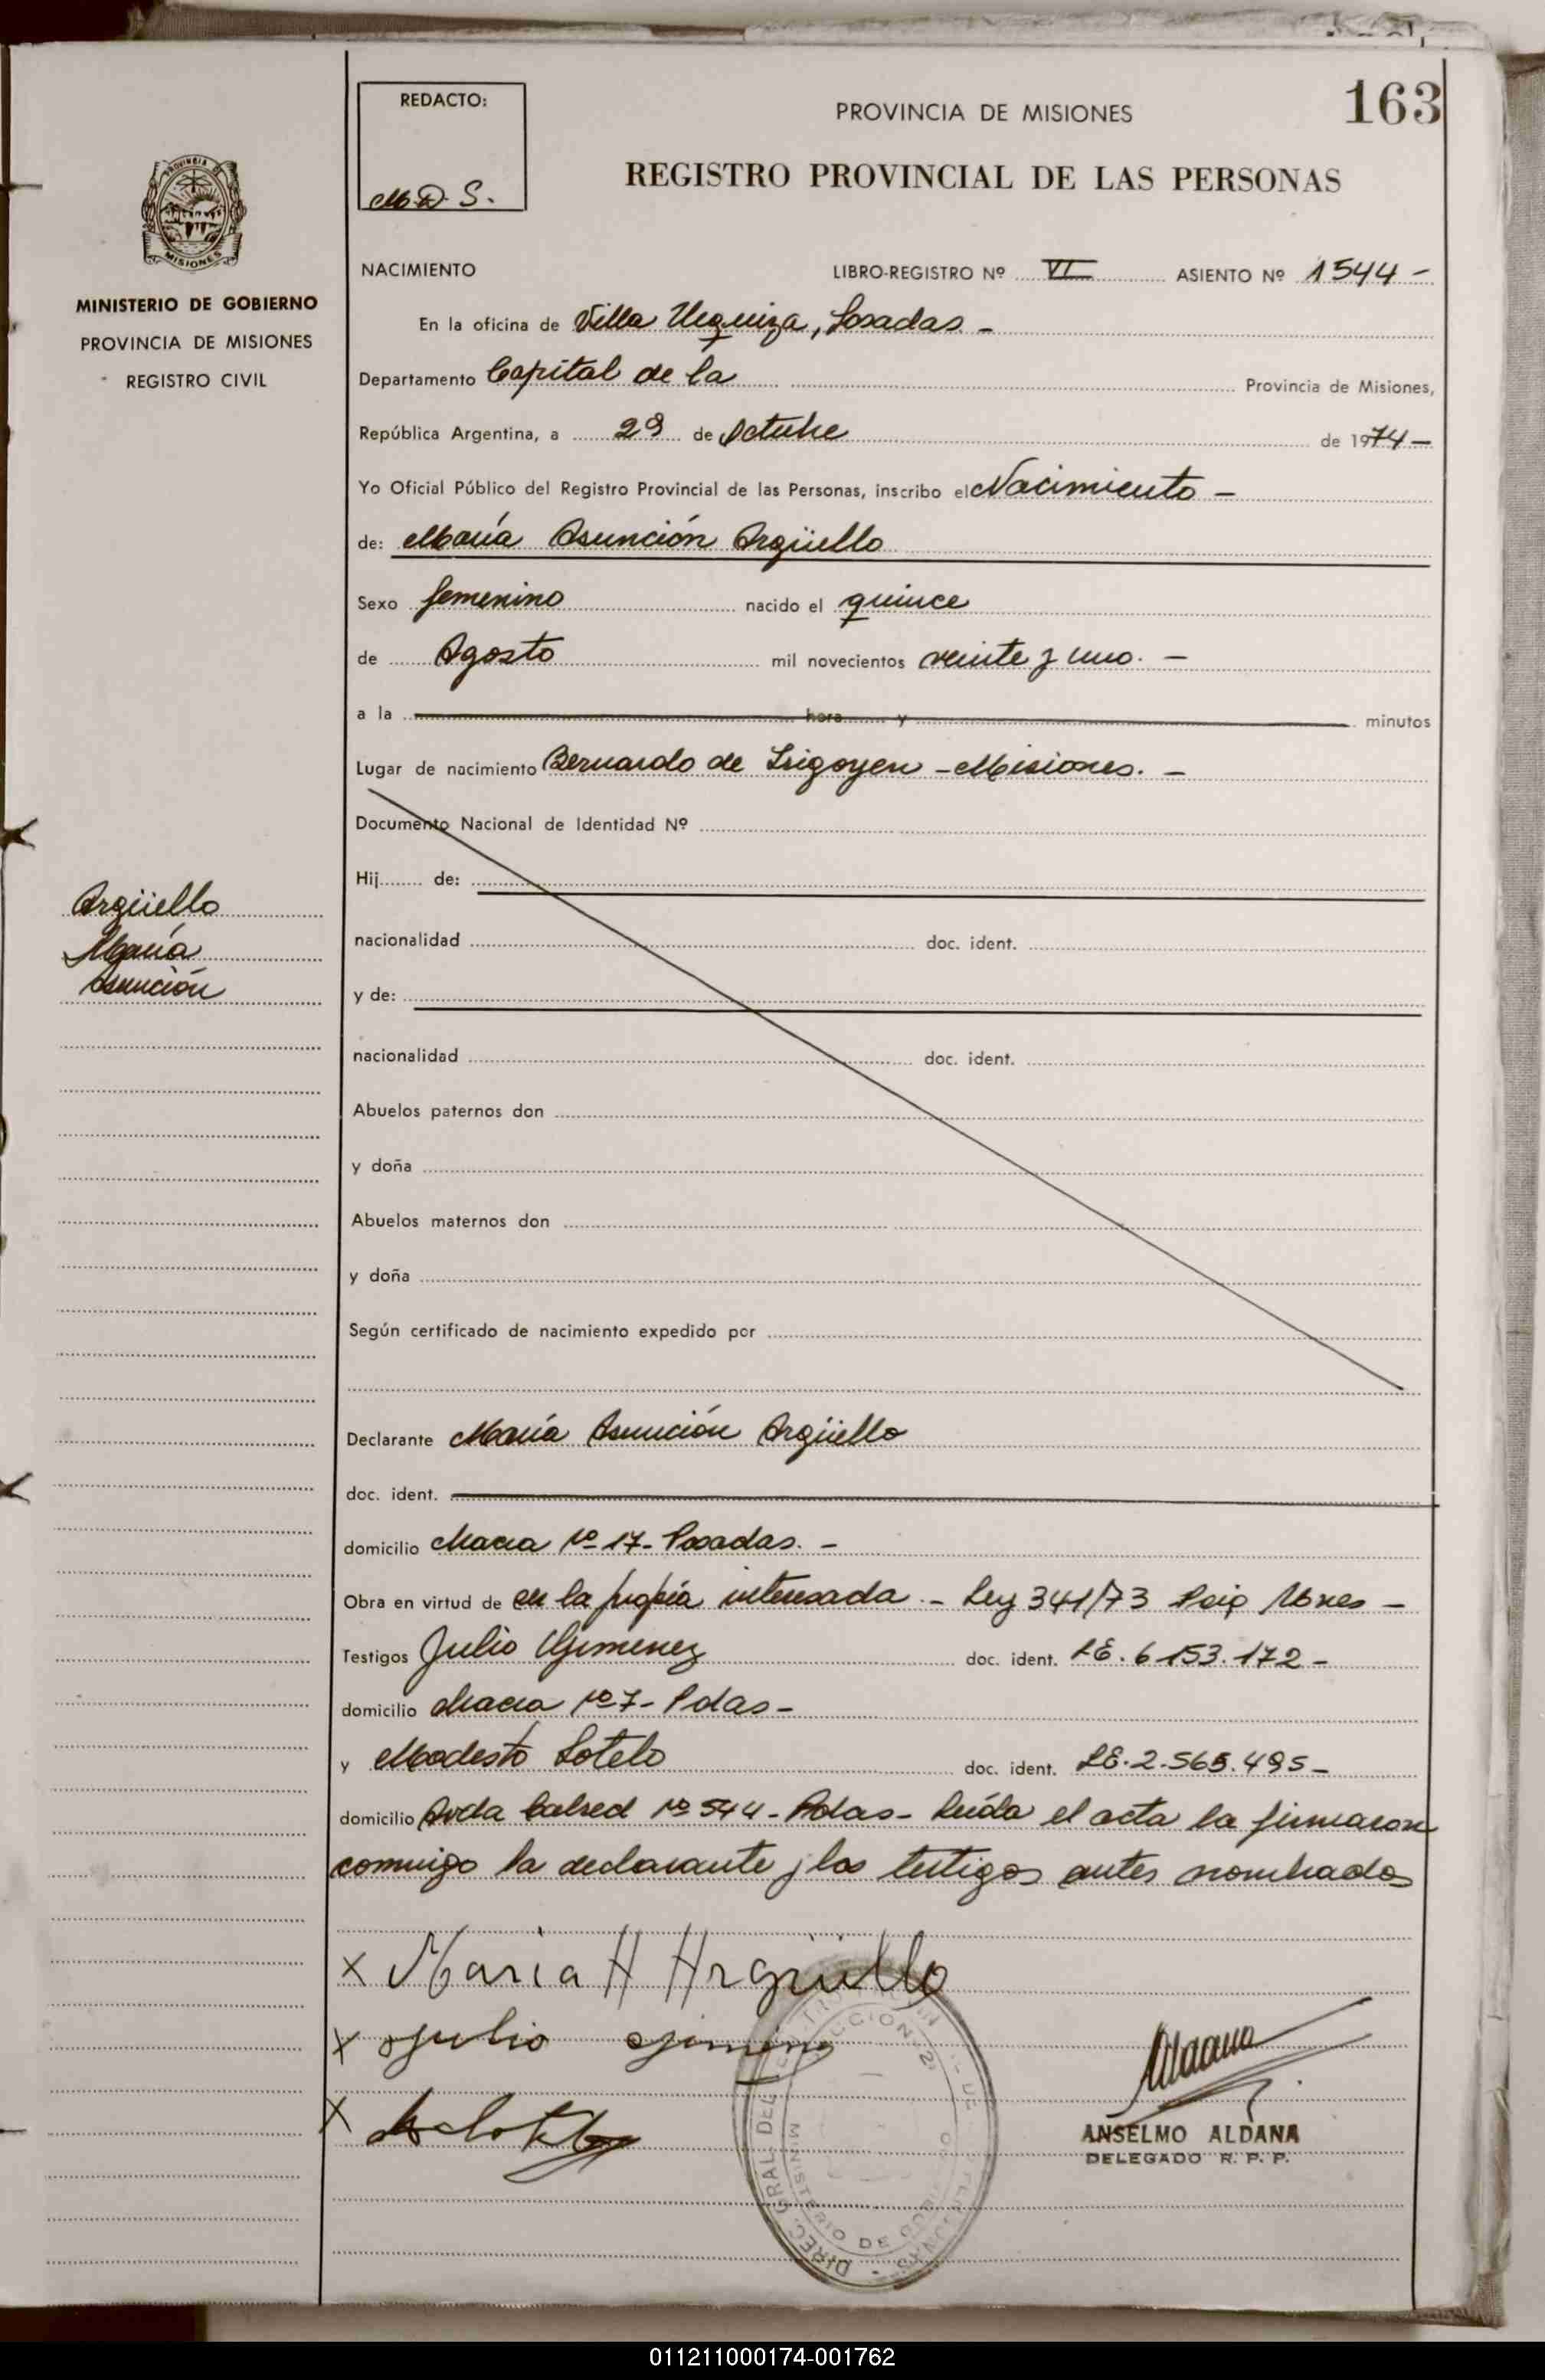 163
REDACTO:
M.D.S.
PROVINCIA DE MISIONES
REGISTRO PROVINCIAL DE LAS PERSONAS
PROVINCIA
MISIONES
MINISTERIO DE GOBIERNO
PROVINCIA DE MISIONES
REGISTRO CIVIL
NACIMIENTO LIBRO-REGISTRO Nº VI ASIENTO Nº 1544 -
En la oficina de Villa Urquiza, Posadas -
Departamento Capital de la Provincia de Misiones,
República Argentina, a 29 de Octubre de 1974 -
Yo Oficial Público del Registro Provincial de las Personas, inscribo el Nacimiento -
de: María Asunción Argüello
Sexo femenino nacido el quince
de Agosto mil novecientos veinte y uno. -
a la hora y minutos
Lugar de nacimiento Bernardo de Irigoyen - Misiones. -
Documento Nacional de Identidad Nº
Hij de:
nacionalidad doc. ident.
y de:
nacionalidad doc. ident.
Abuelos paternos don
y doña
Abuelos maternos don
y doña
Según certificado de nacimiento expedido por
Argüello
María
Asunción
Declarante María Asunción Argüello
doc. ident.
domicilio Chacra Nº 17 - Posadas. -
Obra en virtud de ser la propia interesada - Ley 341/73
Testigos Julio Gimenez doc. ident. LE. 6.153.172 -
domicilio Chacra Nº 7 - Pdas -
y Modesto Sotelo doc. ident. LE. 2.565.495 -
domicilio Avda Nº 544 - Pdas - Leída el acta la firmaron
conmigo la declarante y los testigos antes nombrados
x Maria A Argüello
x Julio Gimenez
x
ANSELMO ALDANA
DELEGADO R. P. P.
DIREC. GRAL. DEL
MINISTERIO DE
011211000174-001762